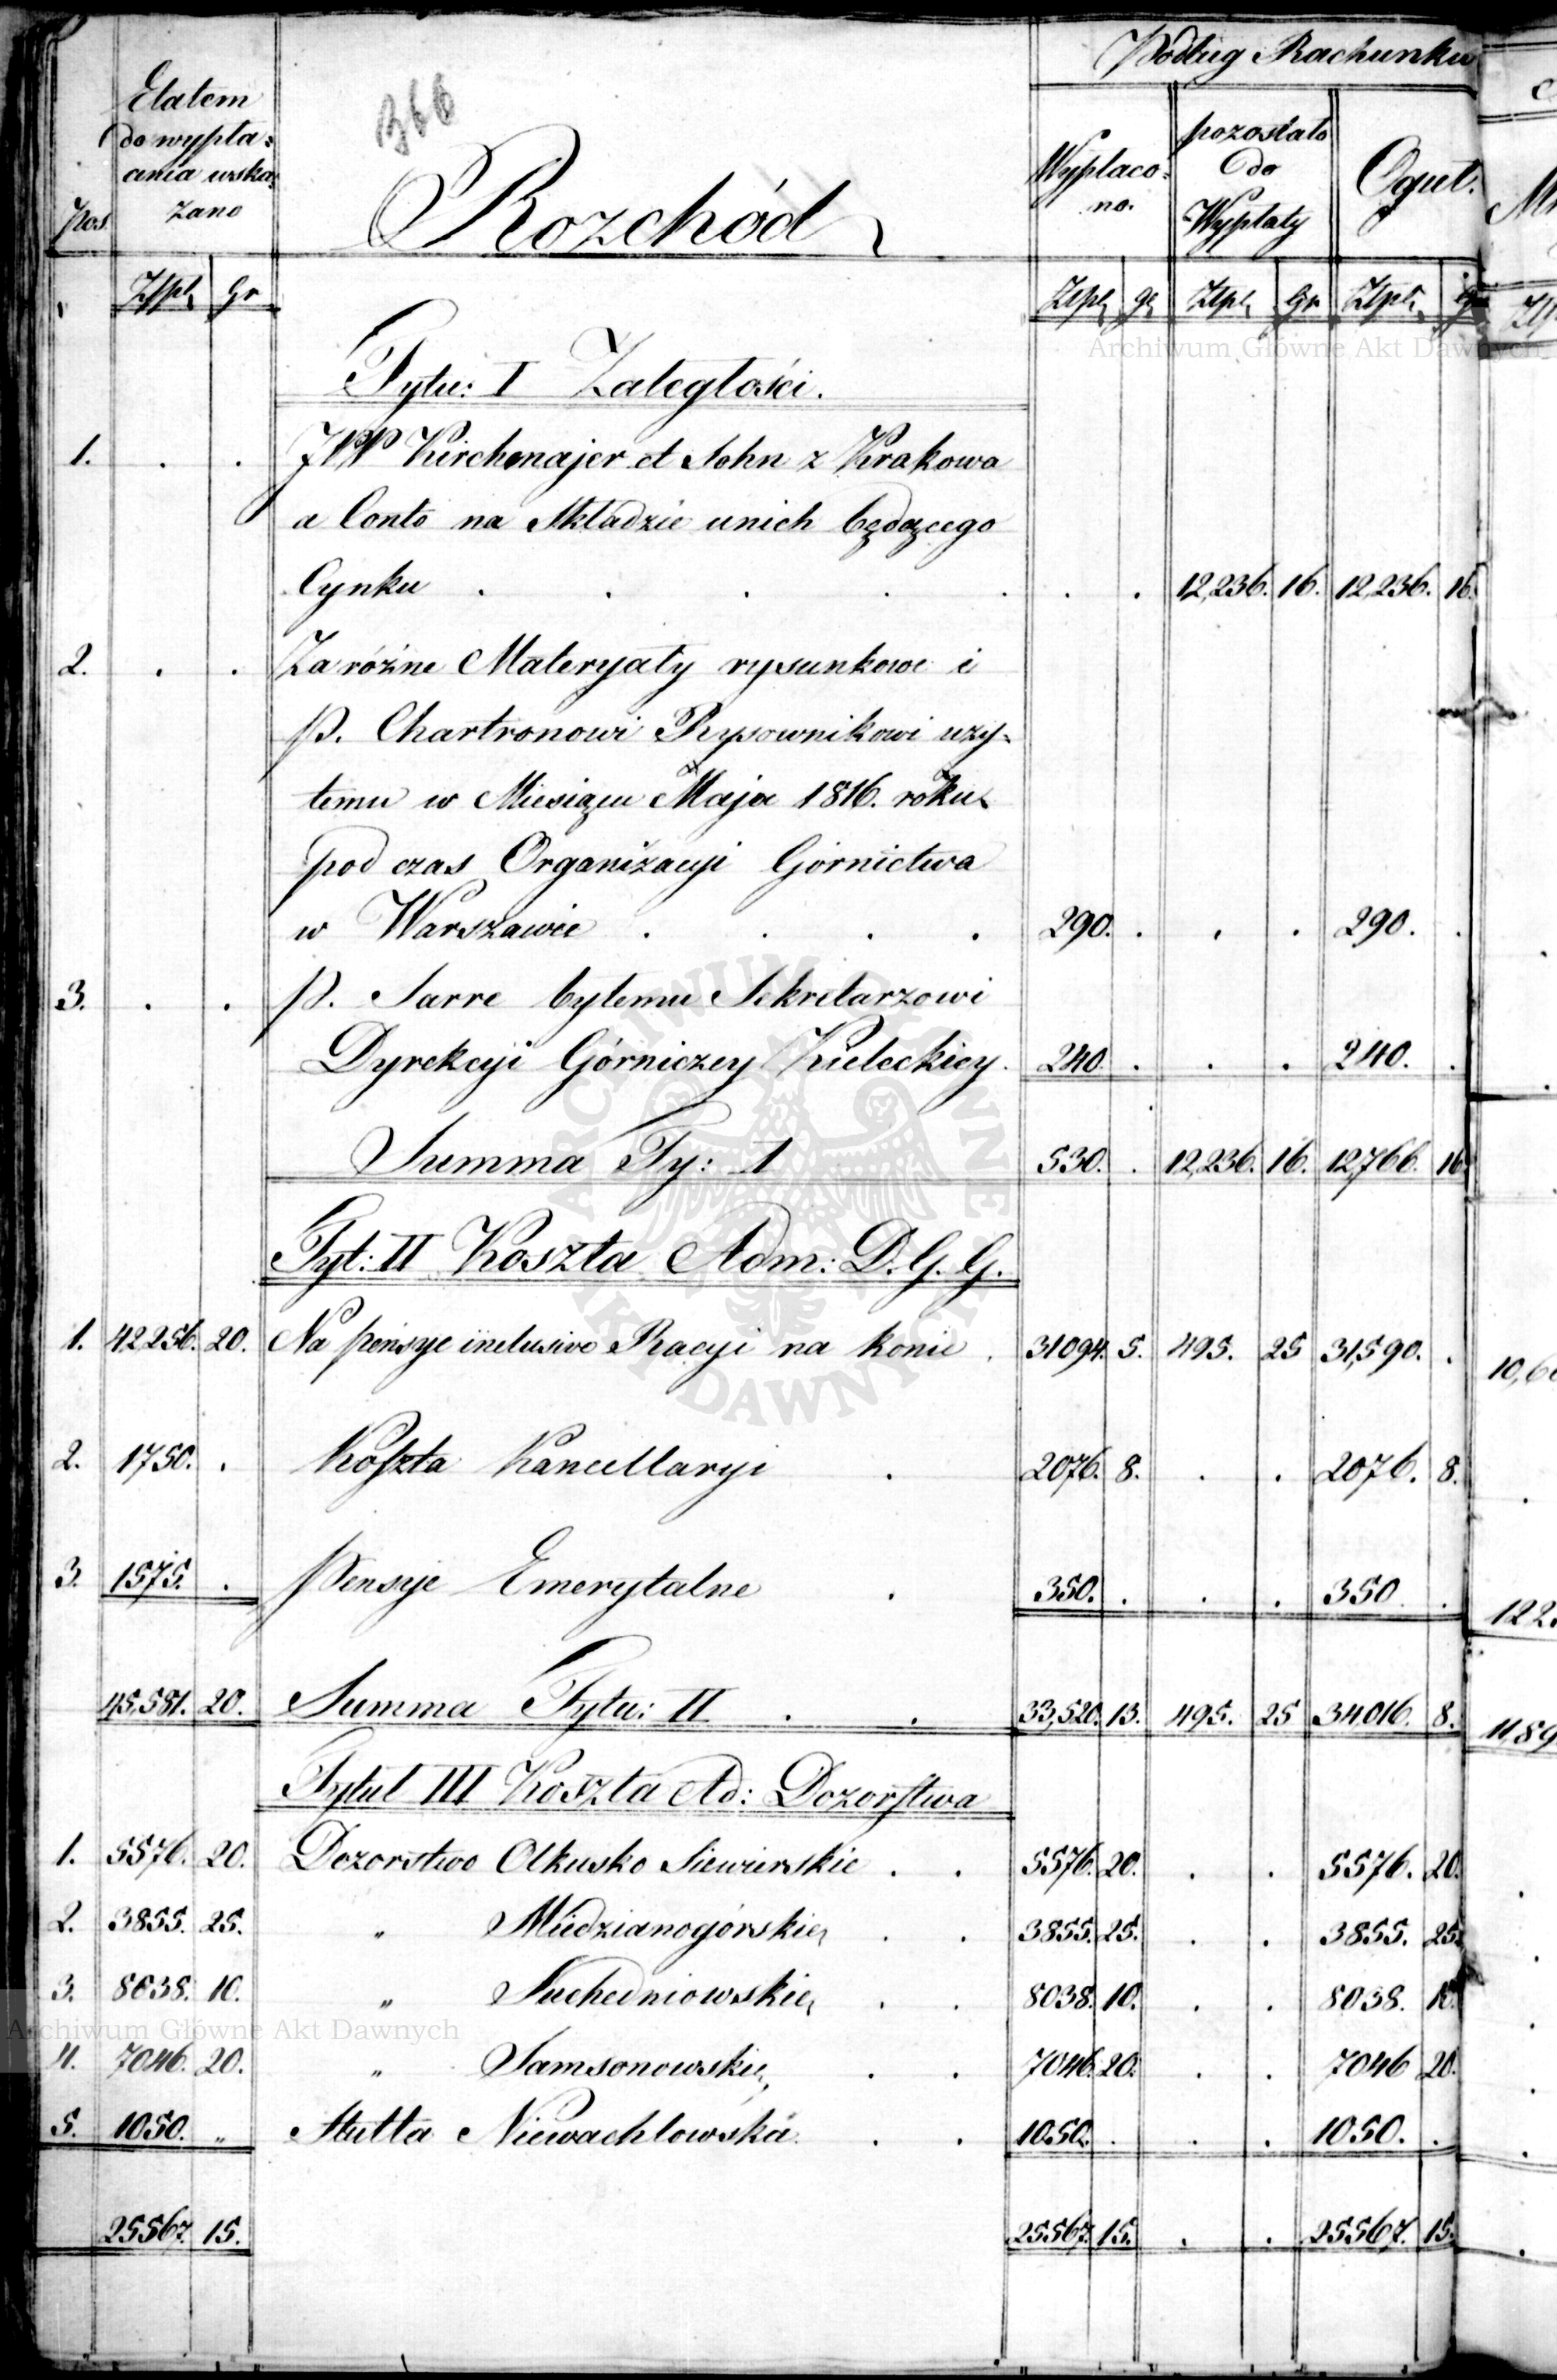 Podług Rachunku
Etatem
do wypła=
ania wska
zano
Pos.
366
Rozchód
Wypłaco=
no.
pozostało
do
Wypłaty
Oguł.
Złpl. Gr Złpl. gr Złpl. Gr Złpl. Gr
Tytu: I Zaległości.
1. . . JPP Kirchmajer et Sohn z Krakowa
a Conto na Składzie unich będącego
Cynku . . . . . . . 12,236. 16. 12,236. 16.
2. . . Za różne Materyały rysunkowe i
P. Chartronowi Rysownikowi uży=
temu w Miesiącu Maja 1816. roku
pod czas Organizacyi Górnictwa
w Warszawie . . . . 290. . . . 290. .
3. . . P. Sarre byłemu Sekretarzowi
Dyrekcyi Górniczey Kieleckiey. 240. . . . 240. .
Summa Ty: I 530. . 12,236. 16. 12,766. 16.
Tyt: II Koszta Adm: D. G. G.
1. 42256. 20. Na pensye inclusive Racyi na konie . 31094. 5. 495. 25 31,590. .
2. 1750. . Koszta Kancellaryi . 2076. 8. . . 2076. 8.
3. 1575. . Pensye Emerytalne . 350. . . . 350 .
45,581. 20. Summa Tytu: II . . 33,520. 13. 495. 25 34016. 8.
Tytuł III Koszta Ad: Dozorstwa
1. 5576. 20. Dozorstwo Olkusko Siewierskie . . 5576. 20. . . 5576. 20.
2. 3855. 25. " Miedzianogórskie . . 3855. 25. . . 3855. 25.
3. 8038. 10. " Suchedniowskie . . 8038. 10. . . 8038. 10.
4. 7046. 20. " Samsonowskie . . 7046. 20. . . 7046 20.
5. 1050. " Hutta Niewachlowska . . 1050. . . . 1050. .
25567. 15. 25567. 15. . . 25567. 15.
10,6
122.
1189
Archiwum Główne Akt Dawnych
ARCHIWUM GŁÓWNE AKT DAWNYCH
Archiwum Główne Akt Dawnych